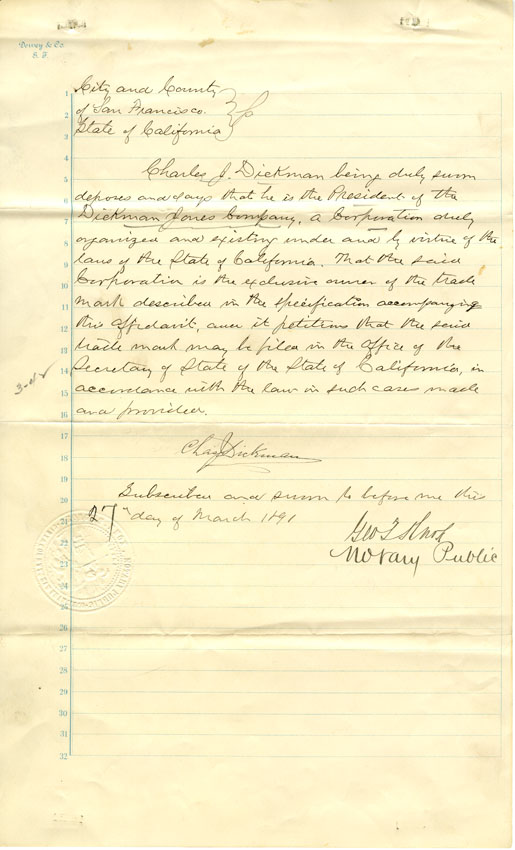 Dewey & Co.
S. F.
1 City and County
2 of San Francisco.
3 State of California
4
5 Charles J. Dickman being duly sworn
6 deposes and says that he is the President of the
7 Dickman Jones Company, a Corporation duly
8 organized and existing under and by virtue of the
9 laws of the State of California. That the said
10 Corporation is the exclusive owner of the trade
11 mark described in the specification accompanying
12 this Affidavit, and it petitions that the said
13 trade mark may be filed in the Office of the
14 Secretary of State of the State of California, in
15 accordance with the law in such cases made
16 and provided.
17
18 Chas J Dickman
19
20 Subscribed and sworn to before me this
21 27th day of March 1891
22 Geo T
23 Notary Public
24
25
26
27
28
29
30
31
32